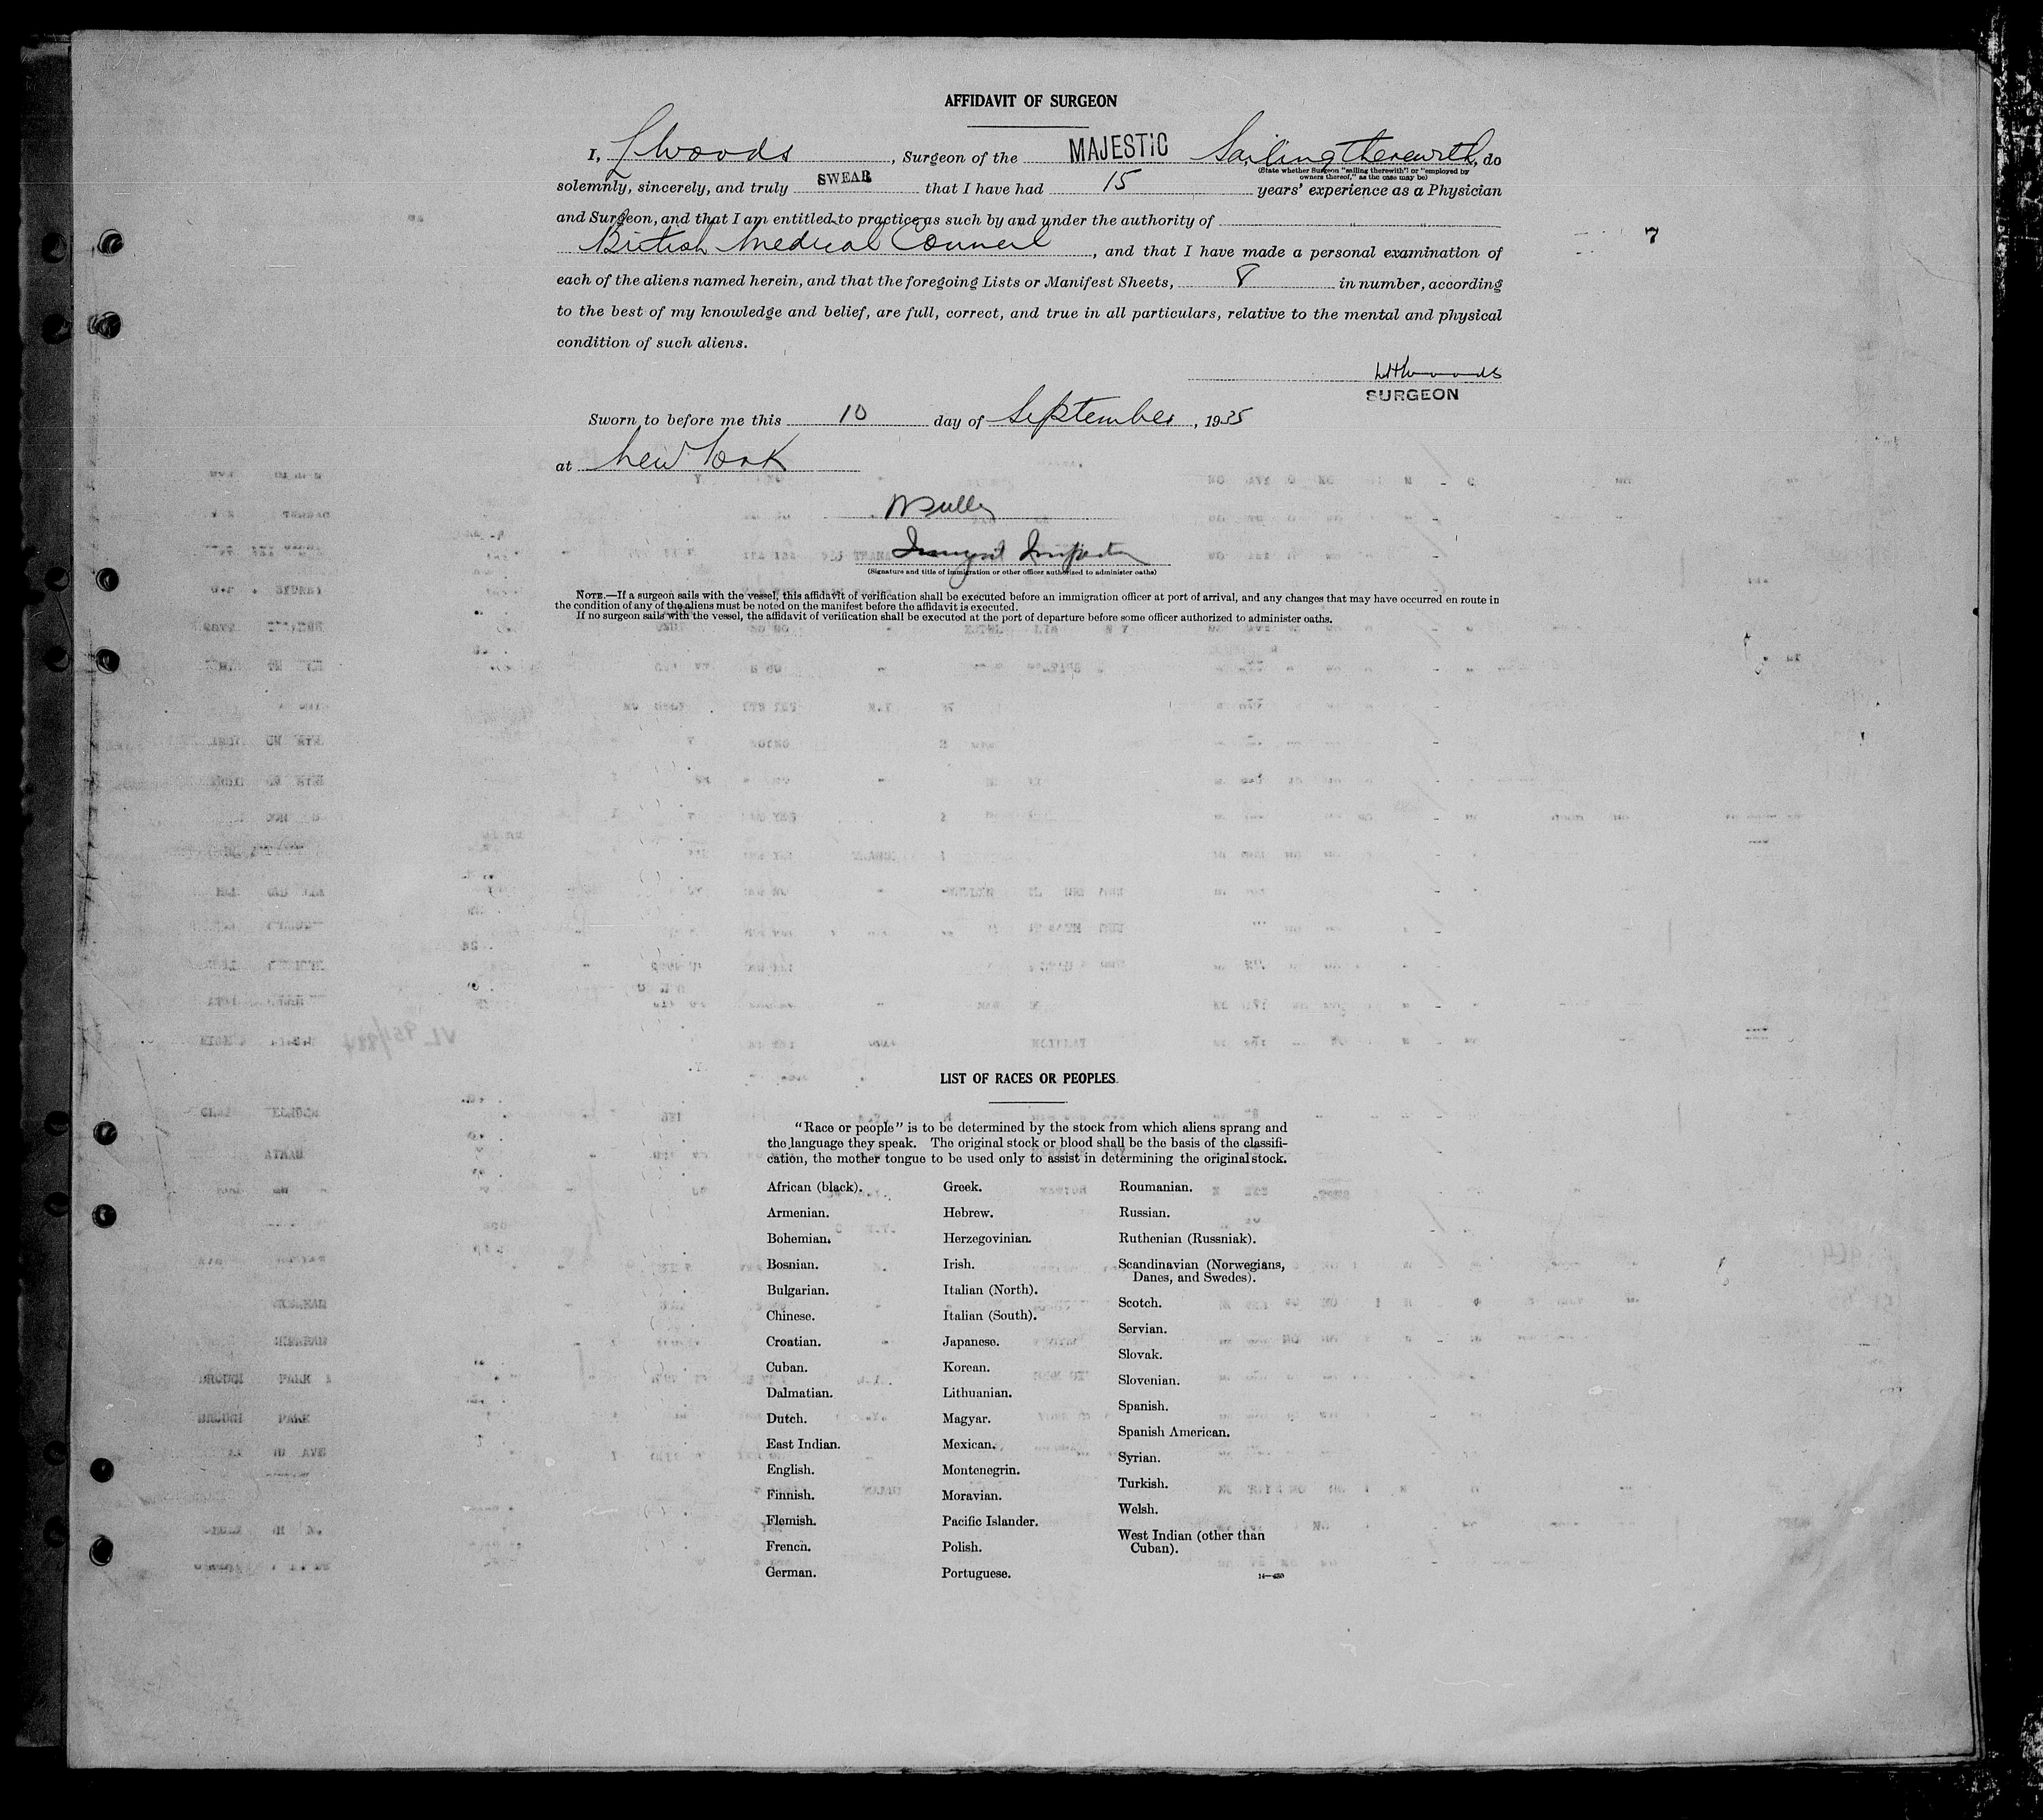 AFFIDAVIT OF SURGEON
I, L Woods, Surgeon of the MAJESTIC Sailing therewith, do
(State whether Surgeon "sailing therewith" or "employed by
owners thereof," as the case may be)
solemnly, sincerely, and truly SWEAR that I have had 15 years' experience as a Physician
and Surgeon, and that I am entitled to practice as such by and under the authority of
British Medical Council, and that I have made a personal examination of
7
each of the aliens named herein, and that the foregoing Lists or Manifest Sheets, 8 in number, according
to the best of my knowledge and belief, are full, correct, and true in all particulars, relative to the mental and physical
condition of such aliens.
SURGEON
Sworn to before me this 10 day of September, 1935
at New York
Immigrant Inspector
(Signature and title of immigration or other officer authorized to administer oaths)
NOTE.—If a surgeon sails with the vessel, this affidavit of verification shall be executed before an immigration officer at port of arrival, and any changes that may have occurred en route in
the condition of any of the aliens must be noted on the manifest before the affidavit is executed.
If no surgeon sails with the vessel, the affidavit of verification shall be executed at the port of departure before some officer authorized to administer oaths.
LIST OF RACES OR PEOPLES
"Race or people" is to be determined by the stock from which aliens sprang and
the language they speak. The original stock or blood shall be the basis of the classifi-
cation, the mother tongue to be used only to assist in determining the original stock.
African (black).
Armenian.
Bohemian.
Bosnian.
Bulgarian.
Chinese.
Croatian.
Cuban.
Dalmatian.
Dutch.
East Indian.
English.
Finnish.
Flemish.
French.
German.
Greek.
Hebrew.
Herzegovinian.
Irish.
Italian (North).
Italian (South).
Japanese.
Korean.
Lithuanian.
Magyar.
Mexican.
Montenegrin.
Moravian.
Pacific Islander.
Polish.
Portuguese.
Roumanian.
Russian.
Ruthenian (Russniak).
Scandinavian (Norwegians,
Danes, and Swedes).
Scotch.
Servian.
Slovak.
Slovenian.
Spanish.
Spanish American.
Syrian.
Turkish.
Welsh.
West Indian (other than
Cuban).